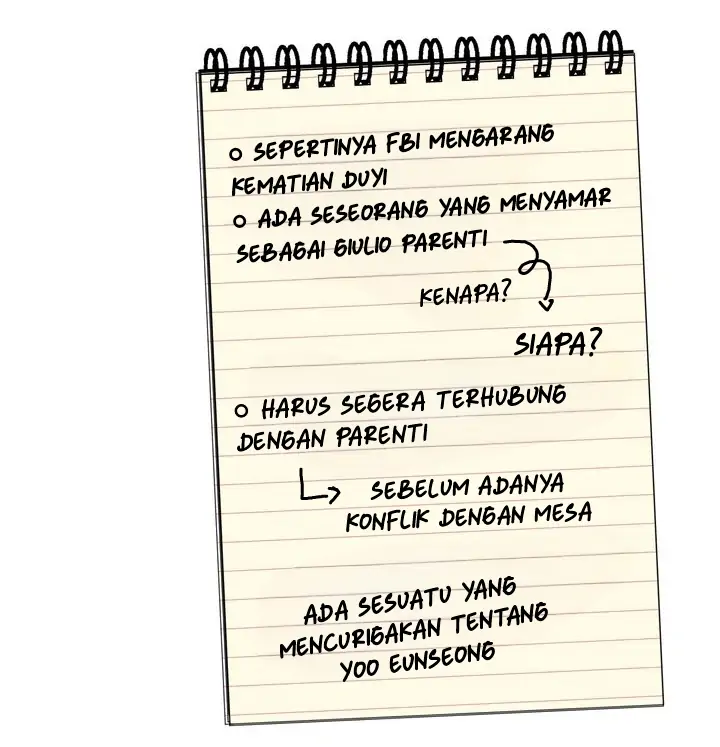 ○ SEPERTINYA FBI MENGARANG
KEMATIAN DUYI
○ ADA SESEORANG YANG MENYAMAR
SEBAGAI GIULIO PARENTI
KENAPA?
SIAPA?
○ HARUS SEGERA TERHUBUNG
DENGAN PARENTI
SEBELUM ADANYA
KONFLIK DENGAN MESA
ADA SESUATU YANG
MENCURIGAKAN TENTANG
YOO EUNSEONG